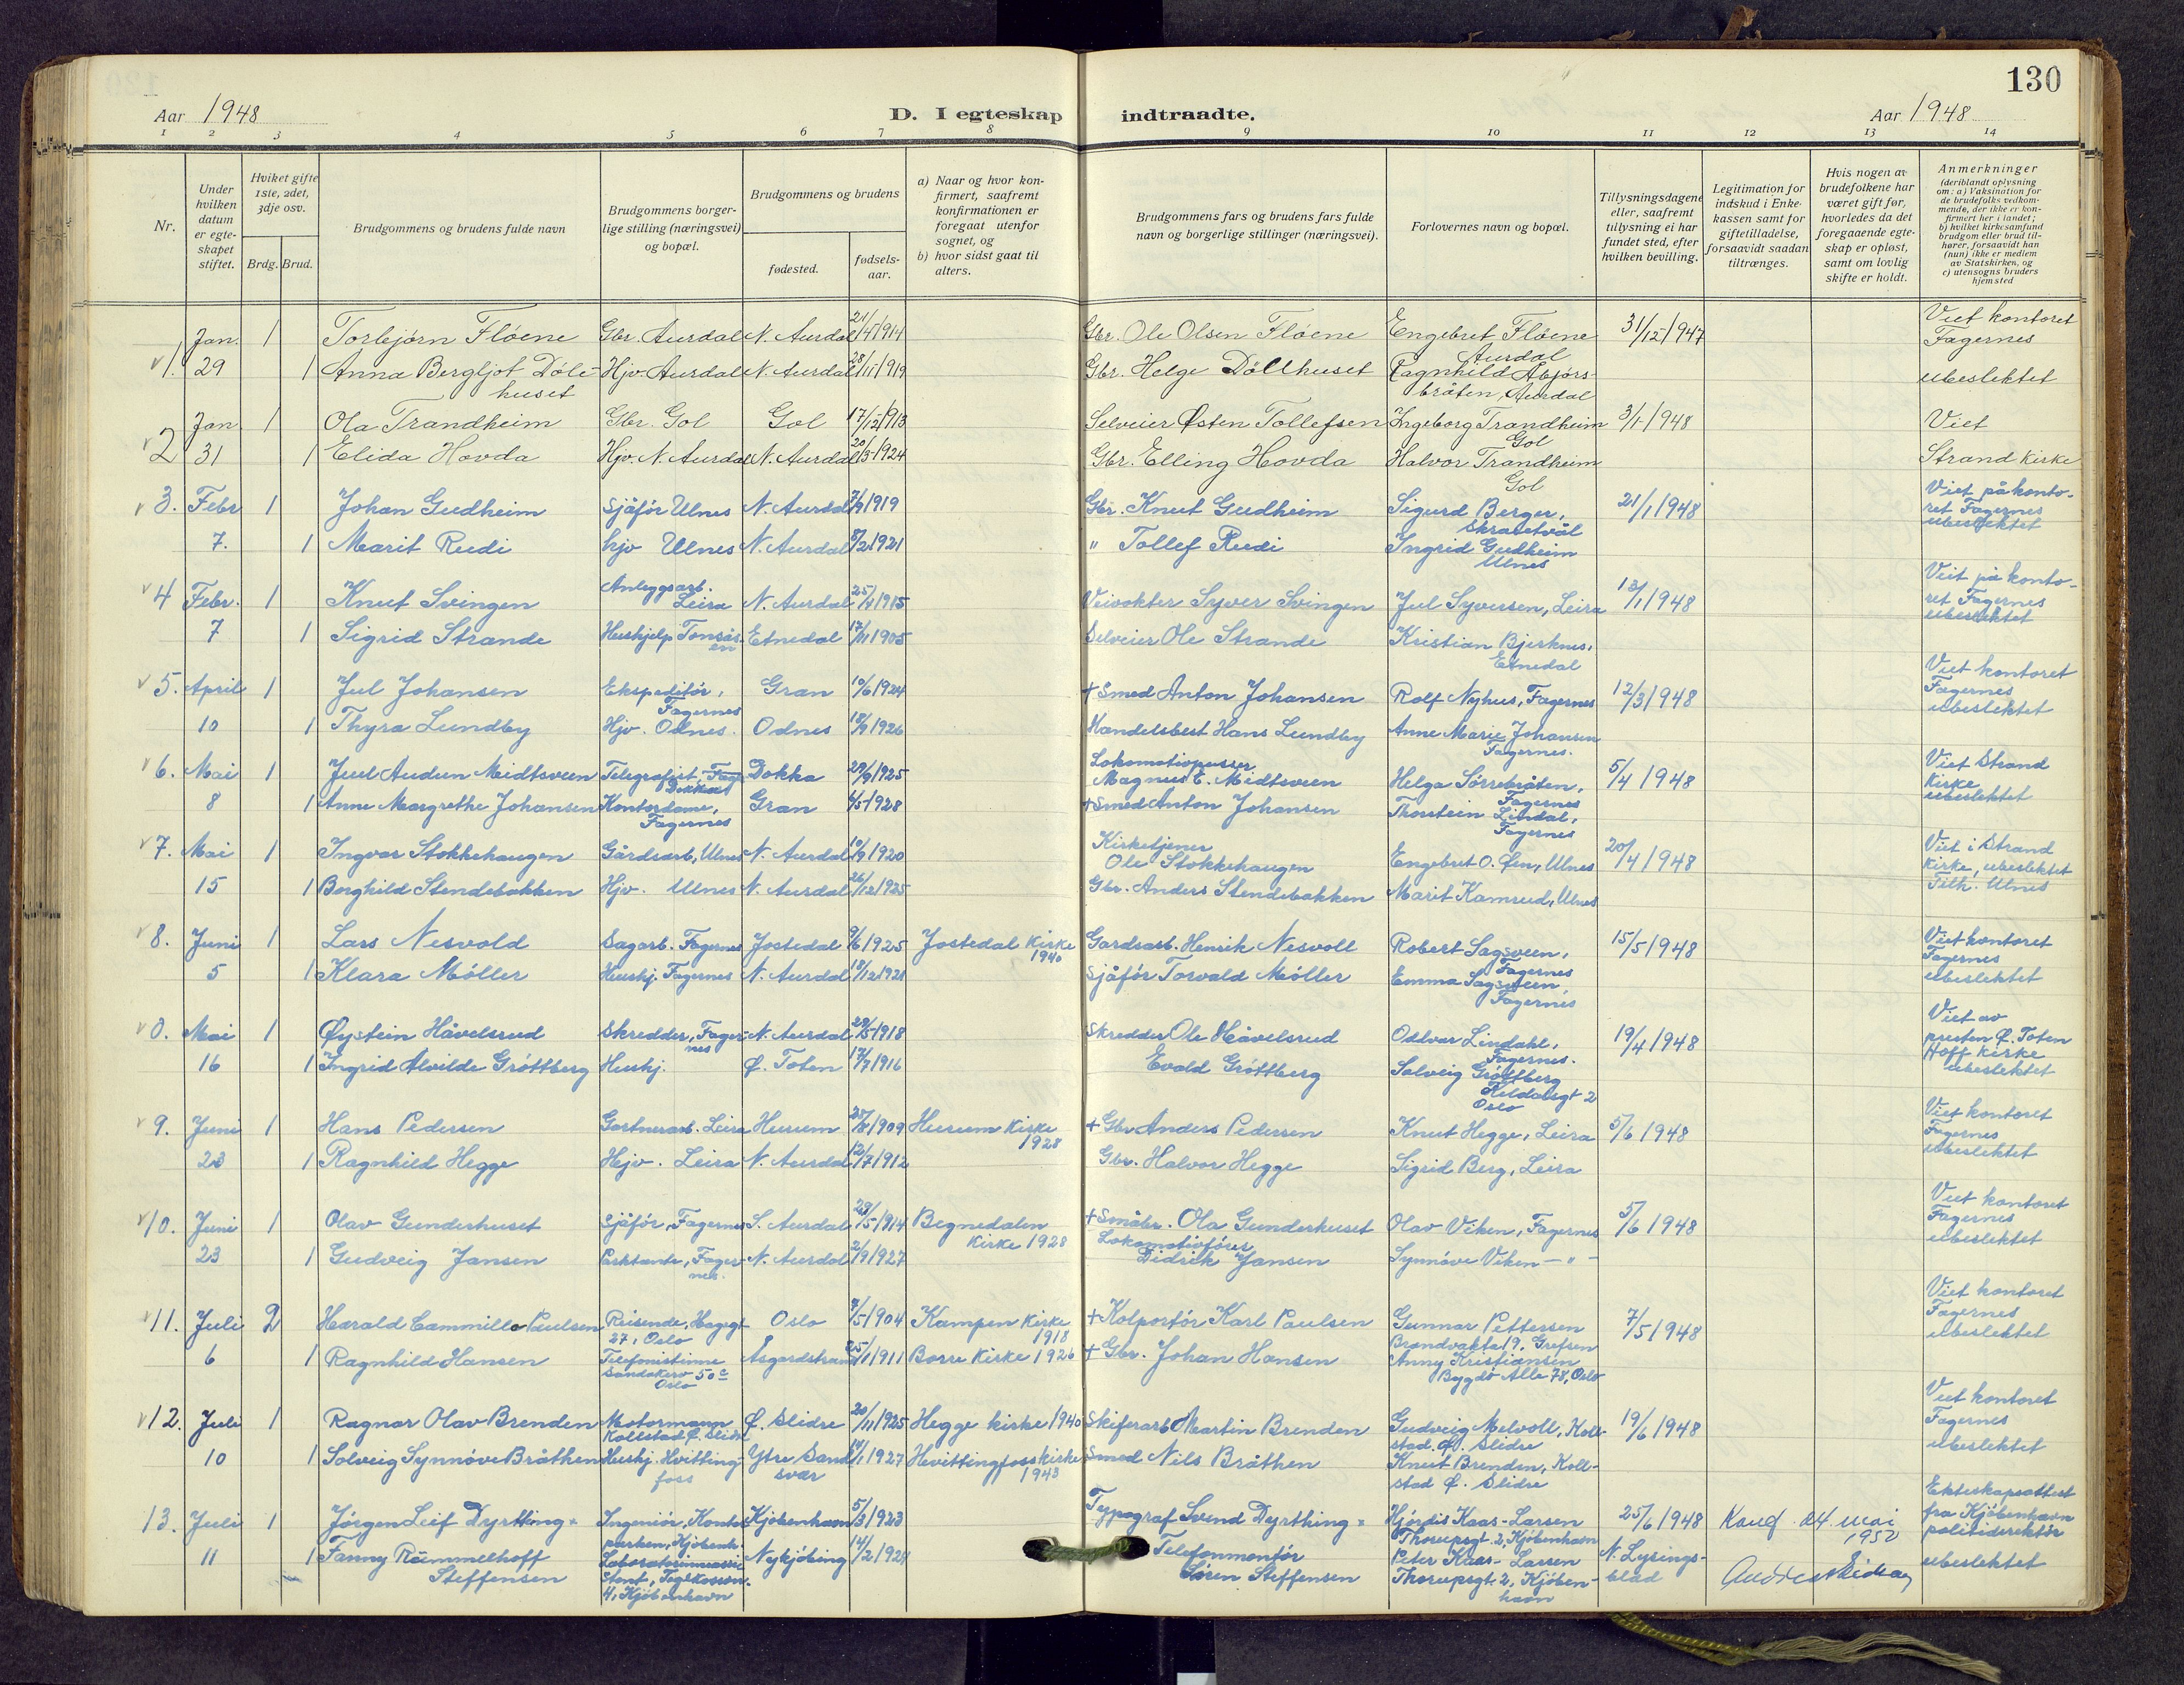 130
Aar 1948
D. I egteskap indtraadte.
Aar 1948
1 2 3 4 5 6 7 8 9 10 11 12 13 14
Nr.
Under hvilken datum er egteskapet stiftet.
Hviket gifte 1ste, 2det, 3dje osv.
Brdg. Brud.
Brudgommens og brudens fulde navn
Brudgommens borgerlige stilling (næringsvei) og bopæl.
Brudgommens og brudens
fødested.
fødselsaar.
a) Naar og hvor konfirmert, saafremt konfirmationen er foregaat utenfor sognet, og
b) hvor sidst gaat til alters.
Brudgommens fars og brudens fars fulde navn og borgerlige stillinger (næringsvei).
Forlovernes navn og bopæl.
Tillysningsdagene eller, saafremt tillysning ei har fundet sted, efter hvilken bevilling.
Legitimation for indskud i Enkekassen samt for giftetilladelse, forsaavidt saadan tiltrænges.
Hvis nogen av brudefolkene har været gift før, hvorledes da det foregaaende egteskap er opløst, samt om lovlig skifte er holdt.
Anmerkninger (deriblandt oplysning om: a) Vaksination for de brudefolks vedkommende, der ikke er konfirmert her i landet; b) hvilket kirkesamfund brudgom eller brud tilhører, forsaavidt han (hun) ikke er medlem av Statskirken, og c) utensogns bruders hjemsted
Jan. 1 Torbjørn Fløene Gbr. Aurdal N. Aurdal 21/4 1914 Gbr. Ole Olsen Fløene Engebret Fløene Aurdal 31/12 1947 Viet kontoret Fagernes
1. 29 1 Anna Bergljot Dölehuset Hjv. Aurdal N. Aurdal 28/11 1919 Gbr. Helge Döllhuset Ragnhild Abjörsbråten, Aurdal ubeslektet
Jan 1 Ola Trandheim Gbr. Gol Gol 17/12 1913 Selveier Østen Tollefsen Ingeborg Trandheim Gol 3/1 1948 Viet
2 31 1 Elida Hovda Hjv. N. Aurdal N. Aurdal 20/3 1924 Gbr. Elling Hovda Halvor Trandheim Gol Strand Kirke
3. Febr 1 Johan Gudheim Sjåför Ulnes N. Aurdal 7/9 1919 Gbr. Knut Gudheim Sigurd Berger, Skrautvål 21/1 1948 Viet på kontoret Fagernes ubeslektet
7. 1 Marit Rudi hjv Ulnes N. Aurdal 8/2 1921 " Tollef Rudi Ingrid Gudheim Ulnes
4 Febr. 1 Knut Svingen Anleggsarb. Leira N. Aurdal 25/4 1915 Veivokter Syver Svingen Jul Syversen, Leira 13/1 1948 Viet på kontoret Fagernes ubeslektet
7 1 Sigrid Strande Hushjelp Tonsåsen Etnedal 17/11 1905 Selveier Ole Strande Kristian Bjerknes, Etnedal
5. April 1 Jul Johansen Ekspeditör, Fagernes Gran 10/6 1924 + Smed Anton Johansen Rolf Nyhus, Fagernes 12/3 1948 Viet kontoret Fagernes ubeslektet
10 1 Thyra Lundby Hjv. Odnes. Odnes 18/9 1926 Handelsbest Hans Lundby Anne Marie Johansen Fagernes.
6. Mai 1 Juul Audun Midtsveen Telegrafist, Dokka Dokka 29/9 1925 Lokomotivpusser Magnus E. Midtsveen Helga Sörrebråten, Fagernes 5/4 1948 Viet Strand Kirke ubeslektet
8 1 Anne Margrethe Johansen Kontordame, Fagernes Gran 4/5 1928 + Smed Anton Johansen Thorstein Lindal, Fagernes
7. Mai 1 Ingvar Stokkehaugen Gårdsarb, Ulnes N. Aurdal 10/9 1920 Kirketjener Ole Stokkehaugen Engebret O. Øen, Ulnes 20/4 1948 Viet i Strand Kirke, ubeslektet Tilh. Ulnes
15 1 Borghild Stendebakken Hjv. Ulnes N. Aurdal 26/12 1925 Gbr. Anders Stendebakken Marit Kamrud, Ulnes
8. Juni 1 Lars Nesvold Sagarb. Fagernes Jostedal 9/6 1925 Jostedal Kirke 1940 Gardsarb. Henrik Nesvoll Robert Sagsveen, Fagernes 15/5 1948 Viet kontoret Fagernes ubeslektet
5 1 Klara Möller Hushj. Fagernes N. Aurdal 18/12 1921 Sjåför Torvald Möller Emma Sagsveen, Fagernes
0. Mai 1 Øystein Håvelsrud Skredder, Fagernes N. Aurdal 29/5 1918 Skredder Ole Håvelsrud Oddvar Lindahl, Fagernes. 19/4 1948 Viet av presten Ø. Toten Hoff Kirke ubeslektet
16 1 Ingrid Alvilde Gröttberg Hushj. Ø. Toten 17/7 1916 Evald Gröttberg Solveig Gröttberg 2 Oslo
9. Juni 1 Hans Pedersen Gartnerarb. Leira Hurum 25/8 1909 Hurum Kirke 1928 + Gbr. Anders Pedersen Knut Hegge, Leira 5/6 1948 Viet kontoret Fagernes ubeslektet
23 1 Ragnhild Hegge Hjv. Leira N. Aurdal 12/7 1912 Gbr. Halvor Hegge Sigrid Berg, Leira
10. Juni 1 Olav Gunderhuset Sjåför, Fagernes S. Aurdal 29/5 1914 Begnedalen Kirke 1928 + Småbr. Ola Gunderhuset Olav Viken, Fagernes 5/6 1948 Viet kontoret Fagernes ubeslektet
23 1 Gudveig Jansen Parktante, Fagernes. N. Aurdal 2/9 1927 Lokomotivförer Didrik Jansen Synnöve Viken — " —
11. Juli 2 Harald Cammillo Paulsen Reisende, Hagegt 27, Oslo Oslo 7/5 1904 Kampen Kirke 1918 + Kolportör Karl Paulsen Gunnar Pettersen Brandvakta 19, Grefsen 7/5 1948 Viet kontoret Fagernes ubeslektet
6 1 Ragnhild Hansen Telefonistinne Sandakerv 50 c Oslo Åsgardstrand 25/1 1911 Borre Kirke 1926 + Gbr. Johan Hansen Anny Kristiansen Bygdö Alle 78, Oslo
12. Juli 1 Ragnar Olav Brenden Motormann Kollstad Ø. Slidre Ø. Slidre 20/11 1925 Hegge kirke 1940 Skiferarb Martin Brenden Gudveig Melvoll, Kollstad. Ø. Slidre 19/6 1948 Viet kontoret Fagernes ubeslektet
10 1 Solveig Synnöve Bråthen Hushj. Hvittingfoss Ytre Sandsvær 14/1 1927 Hevittingfoss kirke 1943 Smed Nils Bråthen Knut Brenden, Kollstad Ø. Slidre
13. Juli 1 Jörgen Leif Dyrthing Ingeniör, Kjöbenh. Kjöbenhavn 5/3 1923 Typograf Svend Dyrthing Hjördis Kaas-Larsen Thorupsgt. 2, Kjöbenhavn 25/6 1948 24. mai 1952 Ekteskapsattest fra Kjöbenhavn politidirektör
11 1 Fanny Rümmelhoff Steffensen Laboratorieassistent, 4, Kjöbenhavn Nykjöbing 14/2 1924 Telefonmontör Sören Steffensen Peter Kaas-Larsen Thorupsgt. 2, Kjöbenhavn N. Lysingsblad ubeslektet